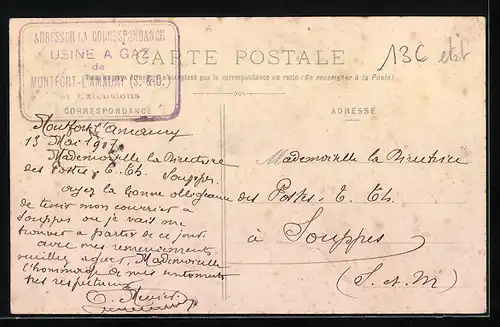 ADRESSER LA CORRESPONDANCE
USINE A GAZ
de
MONTFORT-L'AMAURY (S.-&-O.)
et Extensions
CARTE POSTALE
Tous les pays étrangers n'acceptent pas la correspondance au recto (Se renseigner à la Poste)
CORRESPONDANCE
ADRESSE
136 etat
Montfort l'amaury
13 Mai 1907
Mademoiselle la Directrice
des Postes, T. Th. Souppes
ayez la bonne obligeance
de tenir mon courrier à
Souppes ou je vais me
trouver a partir de ce jour
avec mes remerciements
veuillez agréer, Mademoiselle
l'hommage de mes sentiments
très respectueux
Mademoiselle la Directrice
des Postes, T. Th.
à Souppes
(S. et M)